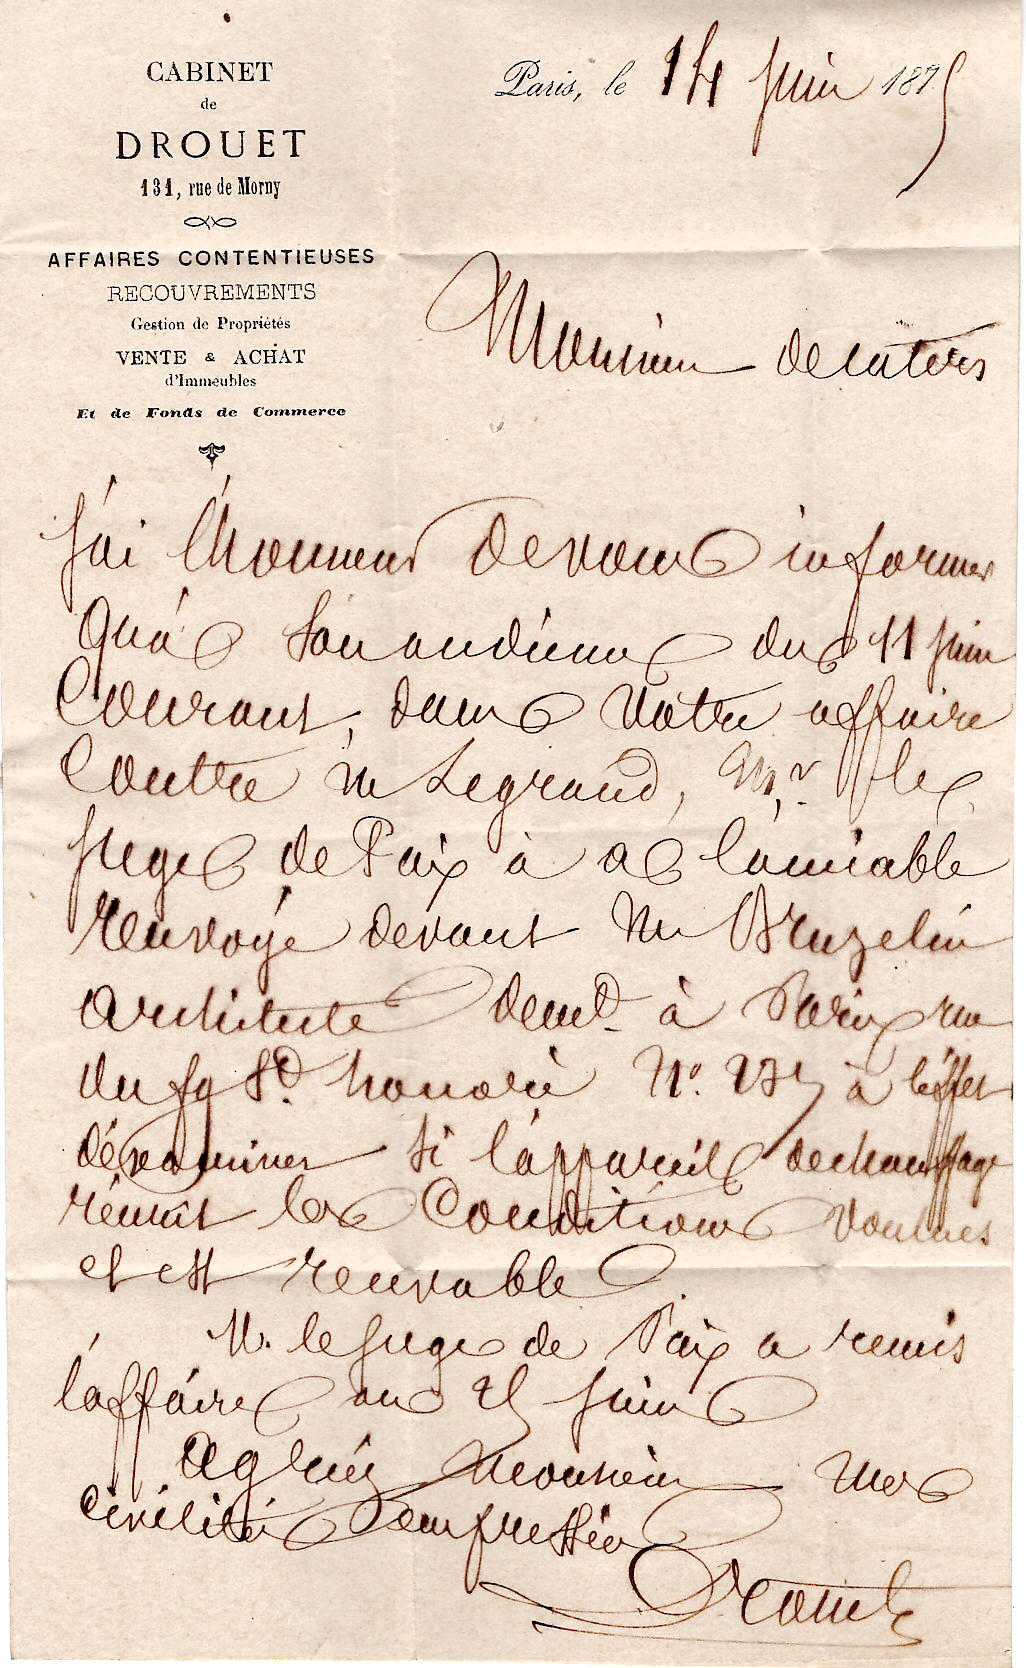 CABINET
de
DROUET
131, rue de Morny
AFFAIRES CONTENTIEUSES
RECOUVREMENTS
Gestion de Propriétés
VENTE & ACHAT
d'Immeubles
Et de Fonds de Commerce
Paris, le 14 juin 1875
Monsieur
J'ai l'honneur de vous informer
qu'à son audience du 11 juin
Courant, dans votre affaire
Contre M Legrand, Mr le
Juge de Paix à a l'amiable
renvoyé devant M Bruzelin
architecte demt à Paris rue
du fg St. honoré No. à l'effet
d'éxaminer si l'appareil de chauffage
réunit les Conditions voulues
et est recevable
M. le Juge de Paix a remis
l'affaire au 25 juin
Agréez Monsieur mes
Civilités Empressées
Drouet